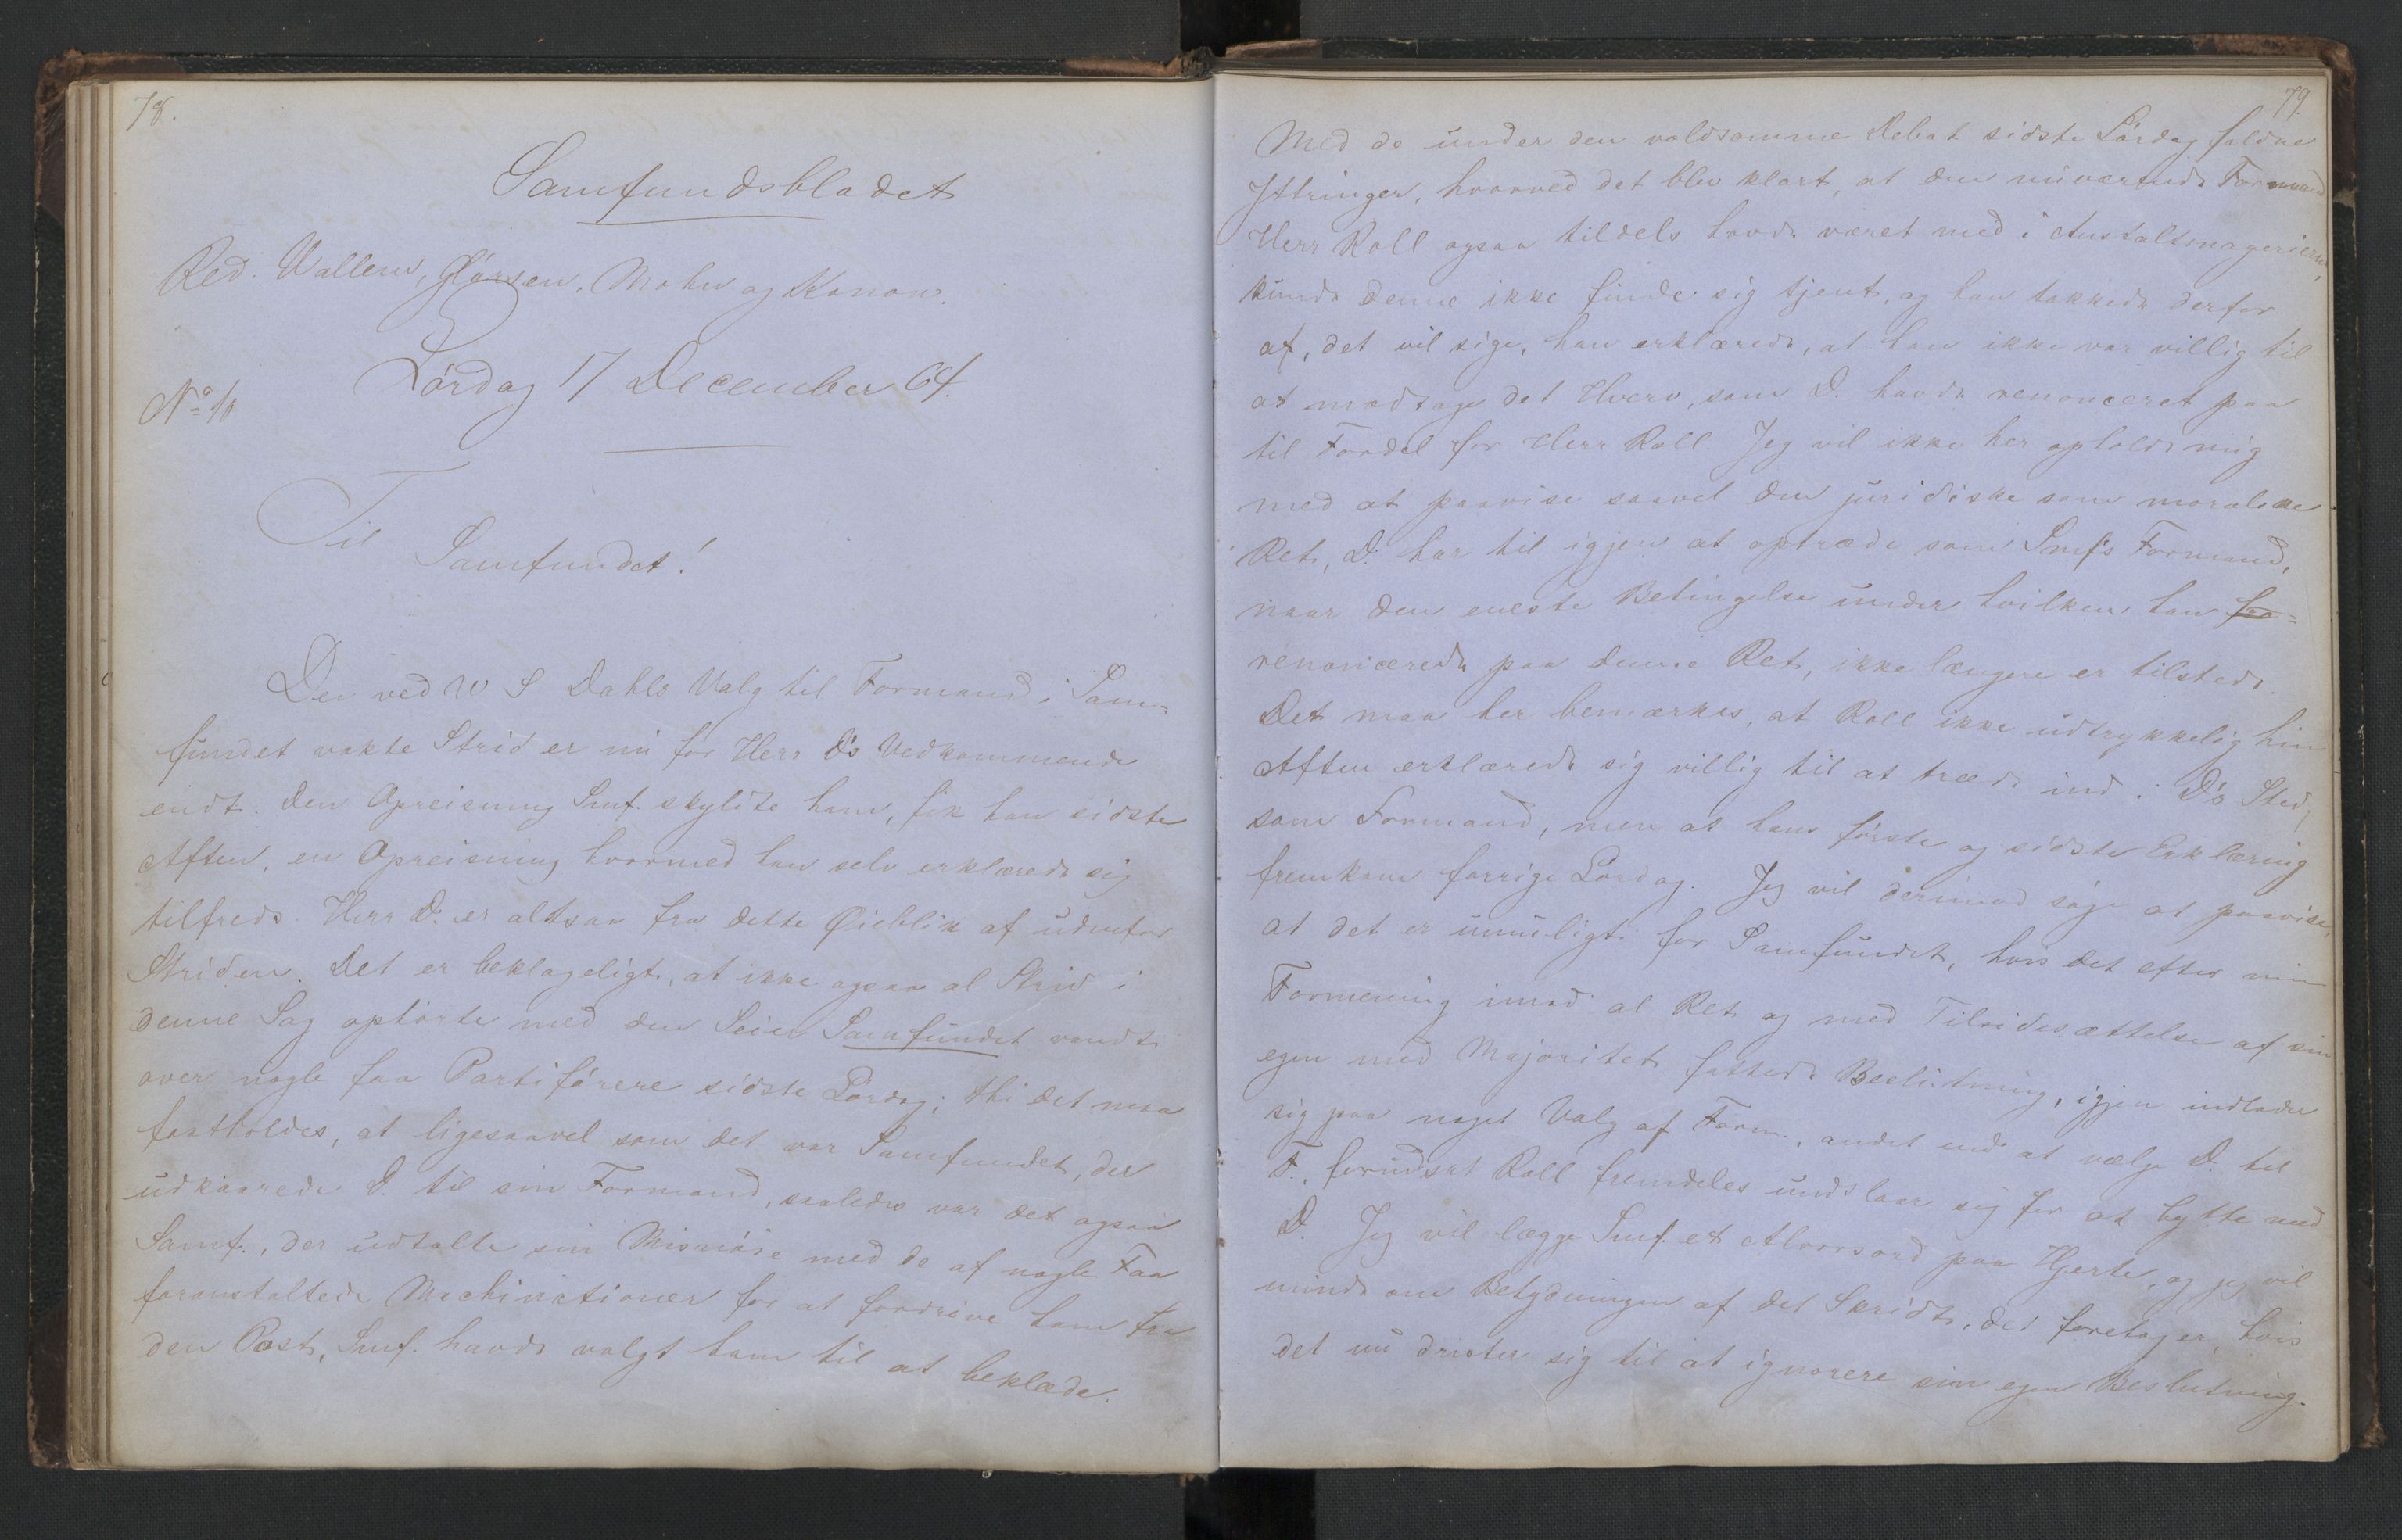 78.
Samfundsbladet
Red. Wallem, Glørsen, Mohn og Konow.
Lördag 17 December 64.
Til
Samfundet!
Den ved W S Dahls Valg til Formand i Sam-
fundet vakte Strid er nu for Herr D's Vedkommende
endt. Den Opreisning Smf. skyldte ham, fik han sidste
Aften, en Opreisning hvormed han selv erklærede sig
tilfreds. Herr D. er altsaa fra dette Øieblik af udenfor
Striden. Det er beklageligt, at ikke ogsaa al Strid i
denne Sag ophörte med den Seier Samfundet vandt
over nogle faa Partiförere sidste Lördag; thi det maa
fastholdes, at ligesaavel som det var Samfundet, der
udkaarede D. til sin Formand, saaledes var det ogsaa
Samf., der udtalte sin Misnöie med de af nogle Faa
foranstaltede Machinationer for at fordrive ham fra
den Post, Smf. havde valgt ham til at beklæde.
79.
Med de under den voldsomme Debat sidste Lördag faldne
Yttringer, hvorved det blev klart, at den nuværende Formand
Herr Roll ogsaa tildels havde været med i Anstaltmagerierne,
kunde denne ikke finde sig tjent, og han takkede derfor
af, det vil sige, han erklærede, at han ikke var villig til
at modtage det Hverv, som D. havde renonceret paa
til Fordel for Herr Roll. Jeg vil ikke her opholde mig
med at paavise saavel den juridiske som moralske
Ret, D. har til igjen at optræde som Smf's Formand,
naar den eneste Betingelse under hvilken han fra-
renoncerede paa denne Ret, ikke længere er tilstede.
Det maa her bemærkes, at Roll ikke udtrykkelig hin
Aften erklærede sig villig til at træde ind i D's Sted,
som Formand, men at hans förste og sidste Erklæring
fremkom forrige Lördag. Jeg vil derimod söge at paavise,
at det er umuligt for Samfundet, hvis det efter min
Formening imod al Ret og med Tilsidesættelse af sin
egen med Majoritet fattede Beslutning, igjen indlader
sig paa noget Valg af Form., andet end at vælge D. til
F., forudsat Roll fremdeles undslaar sig for at bytte med
D. Jeg vil lægge Smf. et Alvorsord paa Hjerte, og jeg vil
minde om Betydningen af det Skridt, det foretager, hvis
det nu drister sig til at ignorere sin egen Beslutning.